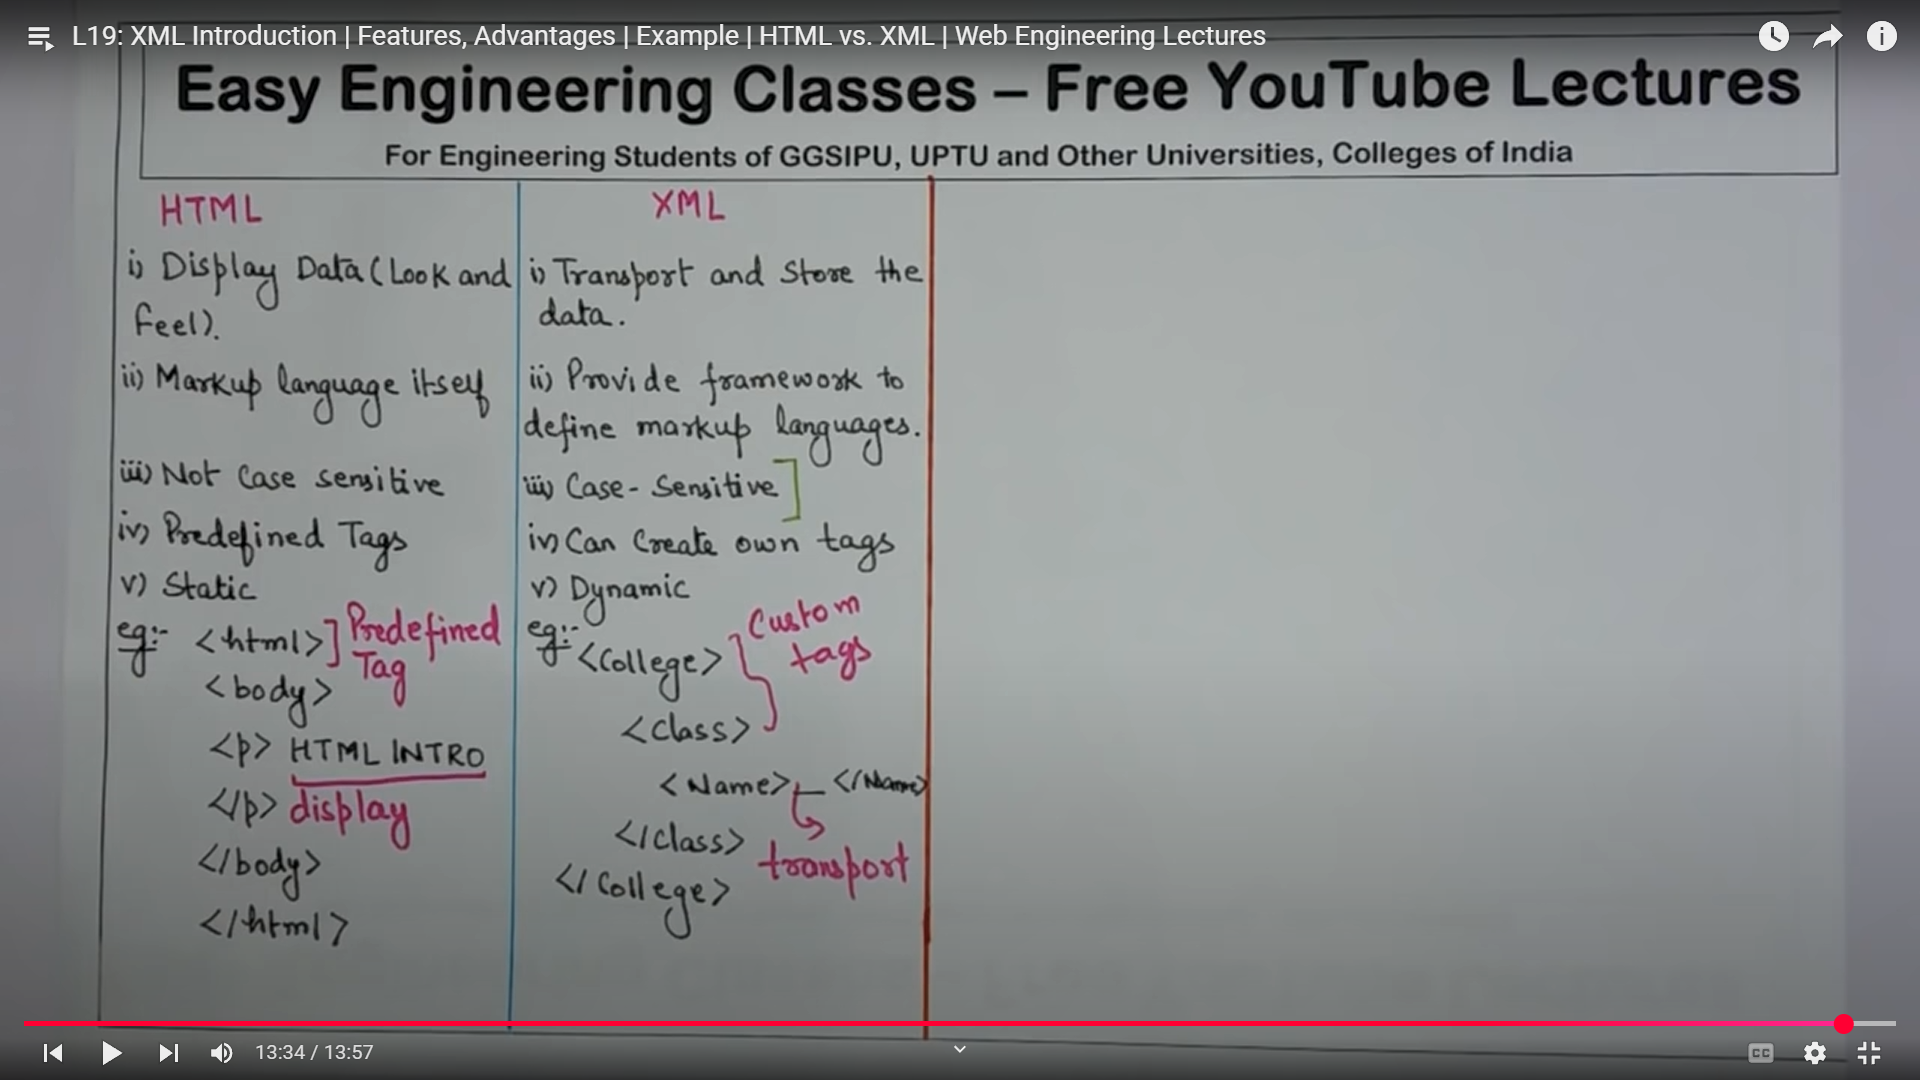 L19: XML Introduction | Features, Advantages | Example | HTML vs. XML | Web Engineering Lectures
Easy Engineering Classes – Free YouTube Lectures
For Engineering Students of GGSIPU, UPTU and Other Universities, Colleges of India
HTML
i) Display Data (Look and
feel).
ii) Markup language itself
iii) Not Case sensitive
iv) Predefined Tags
v) Static
eg:- <html> ] Predefined
Tag
<body>
<p> HTML INTRO
</p> display
</body>
</html>
XML
i) Transport and Store the
data.
ii) Provide framework to
define markup languages.
iii) Case-Sensitive ]
iv) Can Create own tags
v) Dynamic
eg:- <College> } Custom
tags
<Class>
<Name> — </Name>
</Class>
transport
</College>
13:34 / 13:57
CC